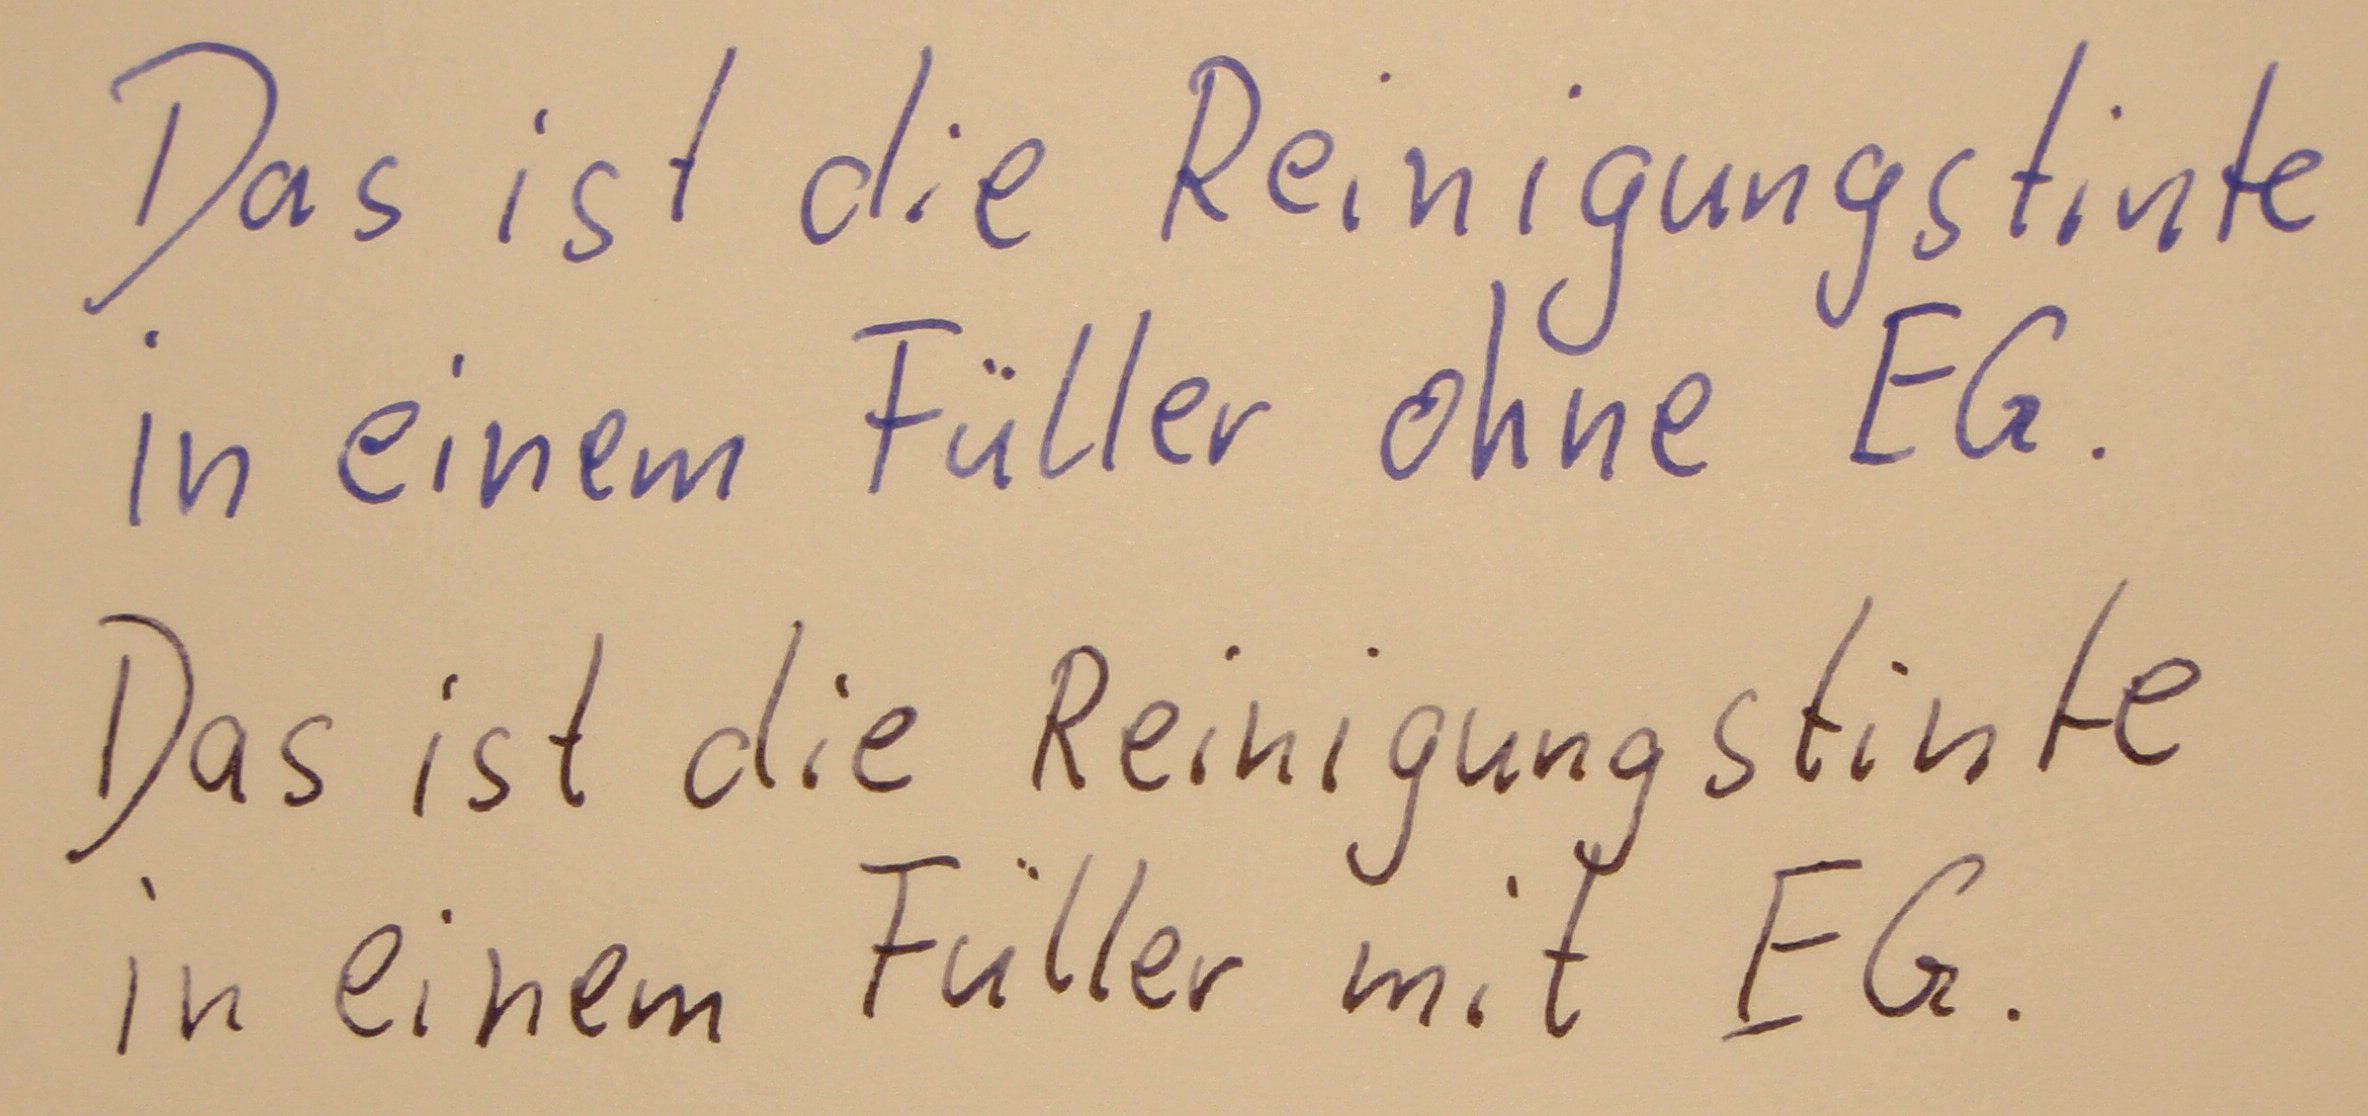 Das ist die Reinigungstinte
in einem Füller ohne EG.
Das ist die Reinigungstinte
in einem Füller mit EG.